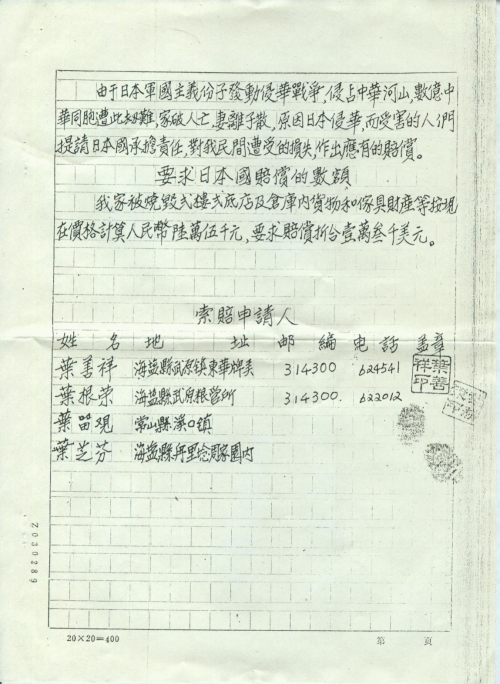 由于日本軍國主義份子發動侵華戰爭，侵占中華河山，數億中
華同胞遭此劫難，家破人亡，妻離子散，原因日本侵華，而受害的人們
提請日本國承擔責任，對我民間遭受的損失，作出應有的賠償。
要求日本國賠償的數額
我家被燒毀弍樓弍底店及倉庫內貨物和傢具財產等按現
在價格計算人民幣陸萬伍千元，要求賠償折合壹萬叁千美元。
索賠申請人
姓 名 地 址 邮 編 電 話 蓋章
葉善祥 海盐縣武原镇東華牌美 314300 624541
葉善祥印
葉根荣 海盐縣武原粮管所 314300. 622012
葉留观 常山縣溪口镇
葉芝芬 海盐縣 園内
Z030289
20×20=400 第 頁